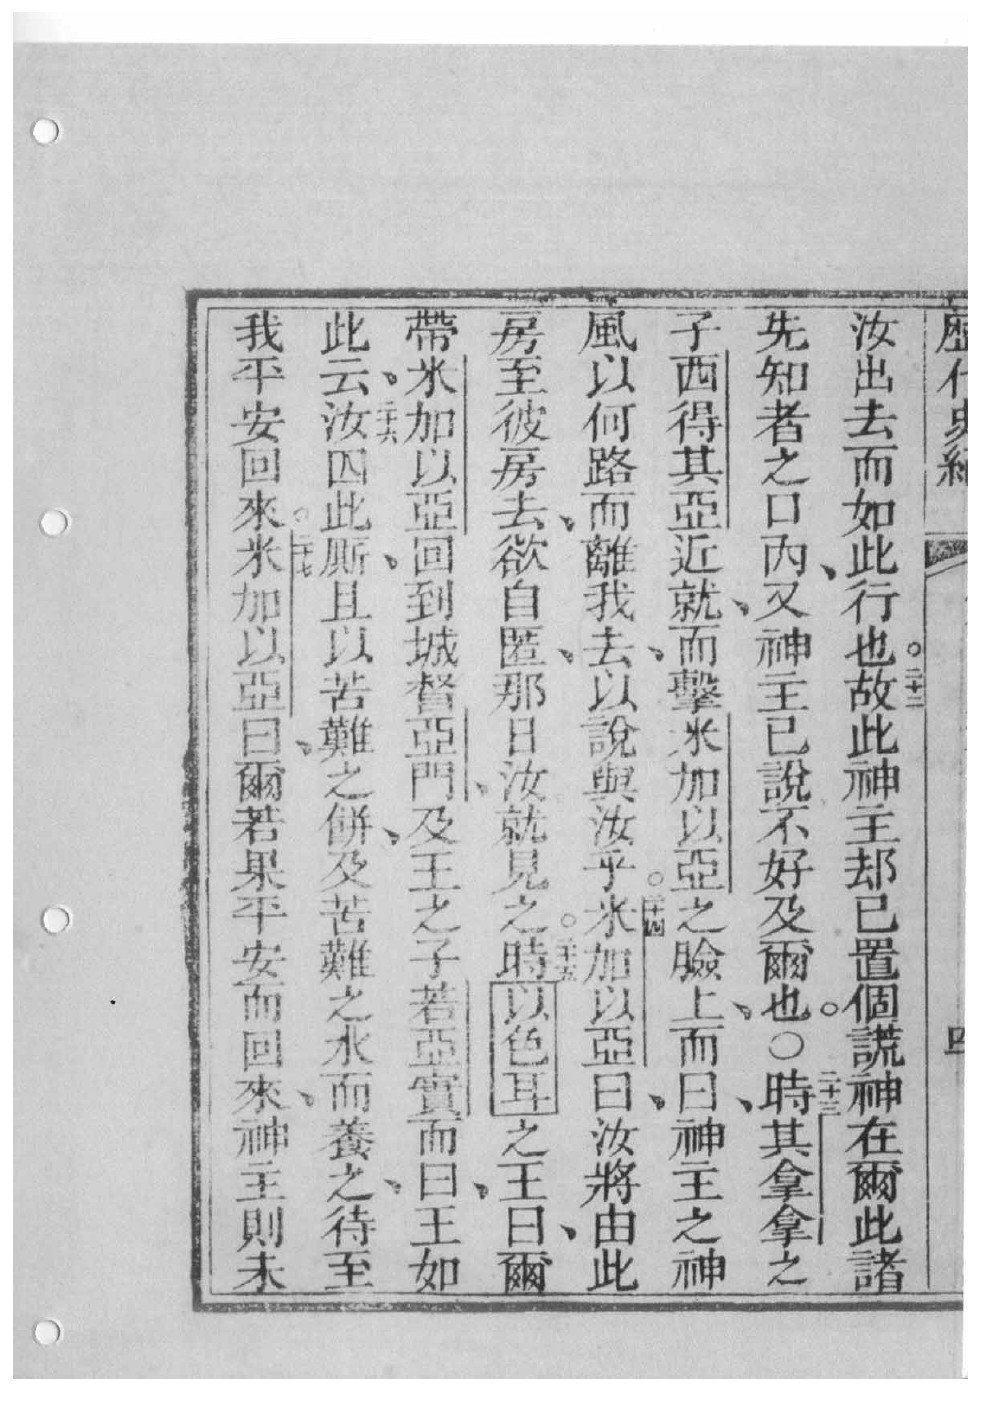 歷代史紀
四
汝出去而如此行也。二十二故此神主却已置個謊神在爾此諸
先知者之口內、又神主已說不好及爾也。○二十三時其拿拿之
子西得其亞近就、而擊米加以亞之臉上、而曰、神主之神
風以何路而離我去、以說與汝乎。二十四米加以亞曰、汝將由此
房至彼房去、欲自匿、那日汝就見之。二十五時以色耳之王曰、爾
帶米加以亞回到城督亞門、及王之子若亞實而曰、王如
此云、二十六汝囚此厮、且以苦難之餅、及苦難之水而養之、待至
我平安回來。二十七米加以亞曰、爾若果平安而回來、神主則未